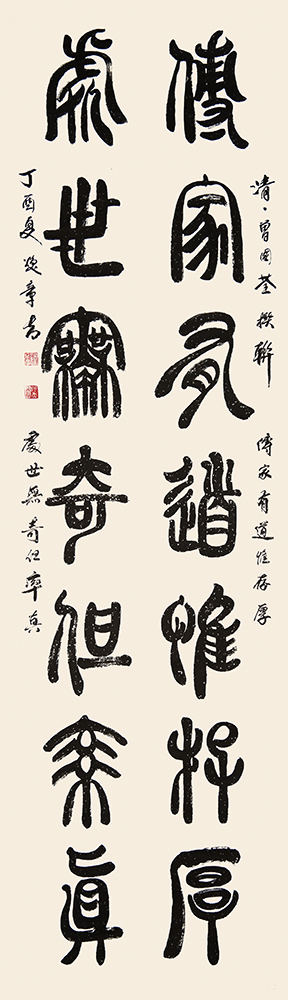 清·曾国荃撰聯
傳家有道惟存厚
傳家有道惟存厚
處世無奇但率真
丁酉夏
處世無奇但率真